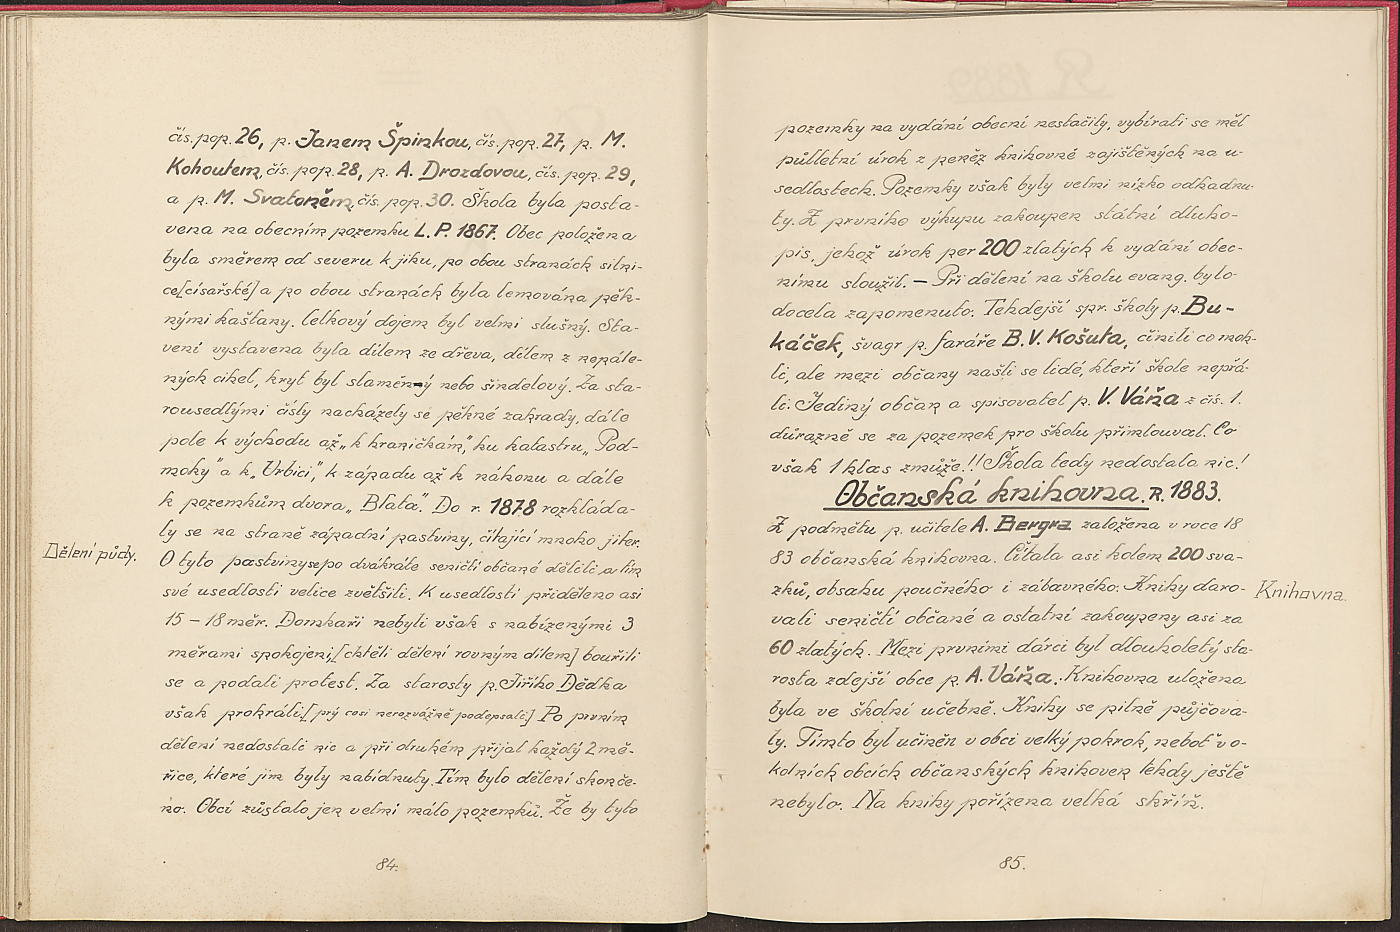 čís. pop. 26, p. Janem Špinkou, čís. pop. 27, p. M.
Kohoutem, čís. pop. 28, p. A. Drozdovou, čís. pop. 29,
a p. M. Svatoněm, čís. pop. 30. Škola byla posta-
vena na obecním pozemku L. P. 1867. Obec položena
byla směrem od severu k jihu, po obou stranách silni-
ce [císařské] a po obou stranách byla lemována pěk-
nými kaštany. Celkový dojem byl velmi slušný. Sta-
vení vystavena byla dílem ze dřeva, dílem z nepále-
ných cihel, kryt byl slaměný nebo šindelový. Za sta-
rousedlými čísly nacházely se pěkné zahrady, dále
pole k východu až „k hraničkám", ku katastru „Pod-
moky" a k „Vrbici", k západu až k náhonu a dále
k pozemkům dvora „Blata". Do r. 1878 rozkláda-
ly se na straně západní pastviny, čítající mnoho jiter.
O tyto pastviny se po dvakráte seničtí občané dělili a tím
své usedlosti velice zvětšili. K usedlosti přiděleno asi
15 – 18 měr. Domkaři nebyli však s nabízenými 3
měrami spokojeni, [chtěli dělení rovným dílem] bouřili
se a podali protest. Za starosty p. Jiřího Dědka
však prohráli, [prý cosi nerozvážně podepsali.] Po prvním
dělení nedostali nic a při druhém přijal každý 2 mě-
řice, které jim byly nabídnuty. Tím bylo dělení skonče-
no. Obci zůstalo jen velmi málo pozemků. Že by tyto
Dělení půdy.
84.
pozemky na vydání obecní nestačily, vybírati se měl
půlletní úrok z peněz knihovně zajištěných na u-
sedlostech. Pozemky však byly velmi nízko odhadnu-
ty. Z prvního výkupu zakoupen státní dluho-
pis, jehož úrok per 200 zlatých k vydání obec-
nímu sloužil. – Při dělení na školu evang. bylo
docela zapomenuto. Tehdejší spr. školy p. Bu-
káček, švagr p. faráře B. V. Košuta, činili co moh-
li, ale mezi občany našli se lidé, kteří škole nepřá-
li. Jediný občan a spisovatel p. V. Váňa z čís. 1.
důrazně se za pozemek pro školu přimlouval. Co
však 1 hlas zmůže.!! Škola tedy nedostala nic!
Občanská knihovna. R. 1883.
Z podmětu p. učitele A. Bergra založena v roce 18
83 občanská knihovna. Čítala asi kolem 200 sva-
zků, obsahu poučného i zábavného. Knihy daro-
vali seničtí občané a ostatní zakoupeny asi za
60 zlatých. Mezi prvními dárci byl dlouholetý sta-
rosta zdejší obce p. A. Váňa. Knihovna uložena
byla ve školní učebně. Knihy se pilně půjčova-
ly. Tímto byl učiněn v obci velký pokrok, neboť v o-
kolních obcích občanských knihoven tehdy ještě
nebylo. Na knihy pořízena velká skříň.
Knihovna.
85.